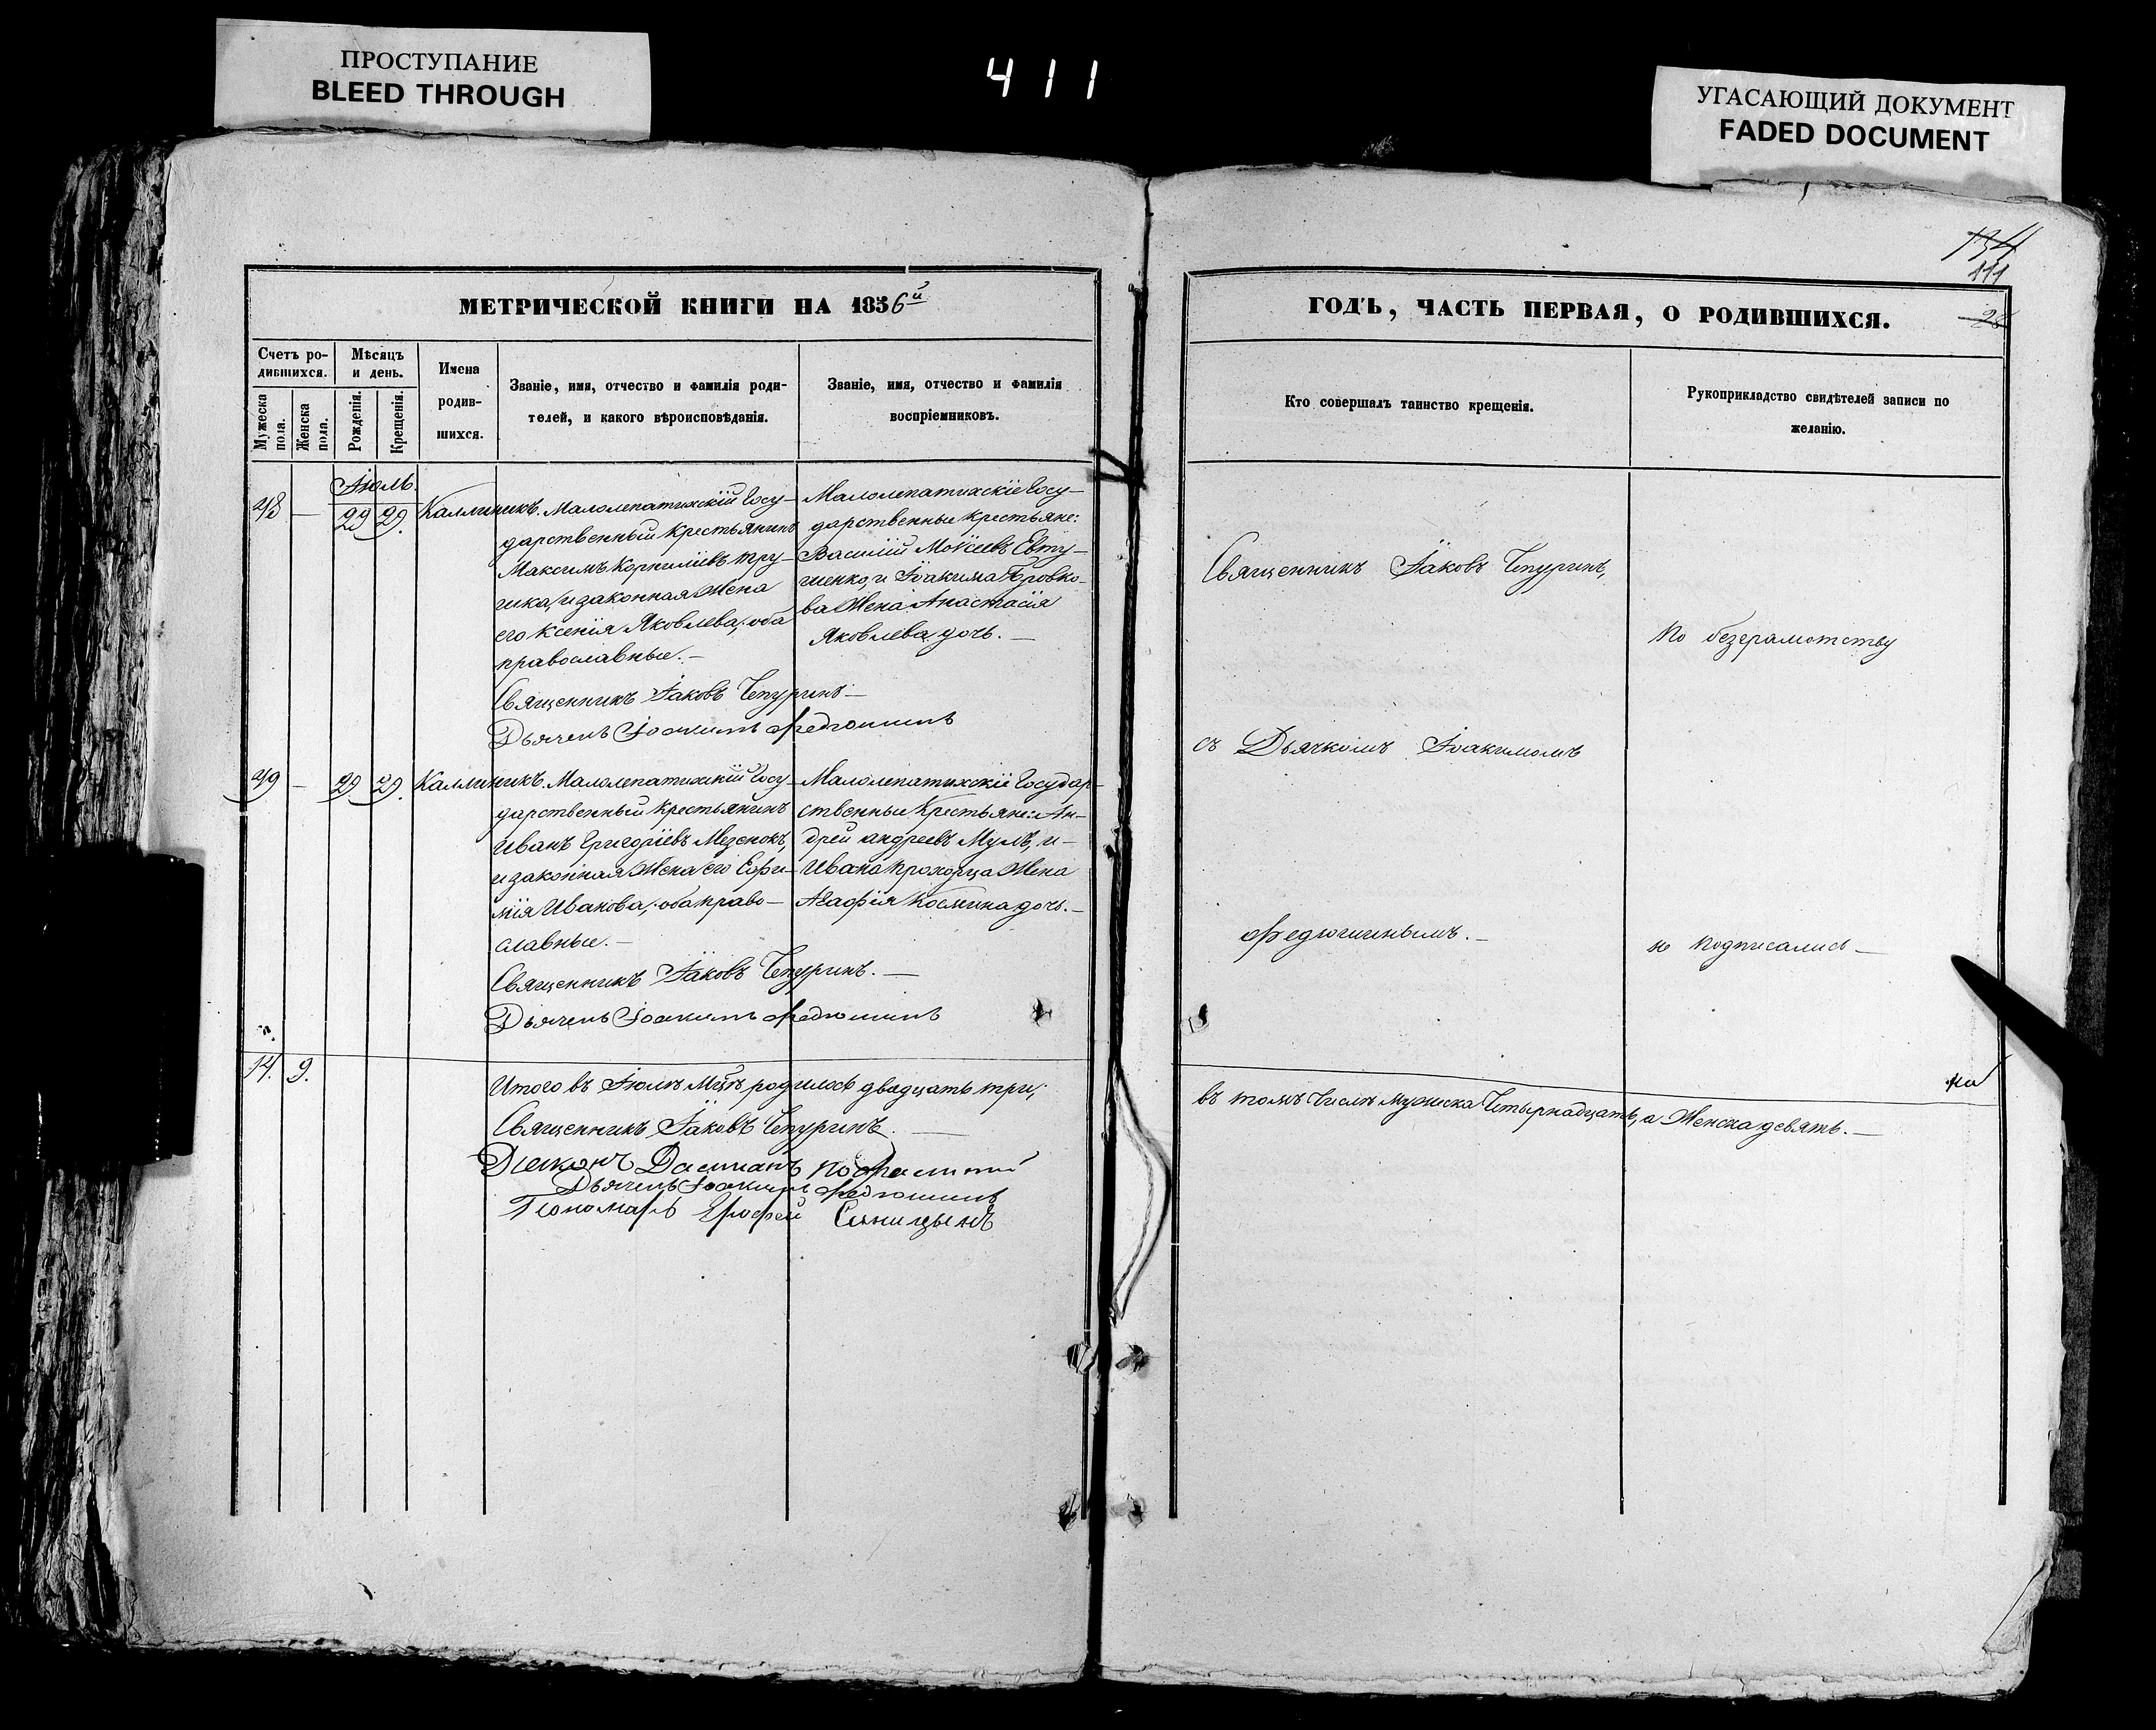 ПРОСТУПАНИЕ
BLEED THROUGH
411
УГАСАЮЩИЙ ДОКУМЕНТ
FADED DOCUMENT
134
111
28
МЕТРИЧЕСКОЙ КНИГИ НА 1856й
Счетъ ро-
дившихся.
Мѣсяцъ
и день.
Мужеска
пола.
Женска
пола.
Рожденія.
Крещенія.
Имена
родив-
шихся.
Званіе, имя, отчество и фамилія роди-
телей, и какого вѣроисповѣданія.
Званіе, имя, отчество и фамилія
воспріемниковъ.
Іюль
48 — 29 29. Каллиникъ.
Малолепатихскій Госу-
дарственный крестьянинъ
Максимъ Корниліевъ
и законная Жена
его Ксенія Яковлева, оба
православные.—
Священникъ Іаковъ Чепуринъ—
Дьячекъ Іоакимъ Федюшинъ
Малолепатихскіе Госу-
дарственные крестьяне:
Василій Моѵсеевъ Евту-
шенко, и Іоакима
Жена Анастасія
Яковлева дочь.—
49 — 29 29. Каллиникъ.
Малолепатихскій Госу-
дарственный крестьянинъ
Иванъ Григоріевъ Мезенокъ,
и законная Жена его Ефи-
мія Иванова, оба право-
славные.—
Священникъ Іаковъ Чепуринъ.—
Дьячекъ Іоакимъ Федюшинъ
Малолепатихскіе Государ-
ственные Крестьяне: Ан-
дрей Андреевъ Мулъ, и—
Ивана Прохорца Жена
Агафія Космина дочь.—
14. 9.
Итого въ Іюлѣ Мцѣ родилось двадцать три,
Священникъ Іаковъ Чепуринъ.—
Діаконъ Даміанъ
Дьячекъ Іоакимъ Федюшинъ
Пономарь Ерофей Синицынъ
ГОДЪ, ЧАСТЬ ПЕРВАЯ, О РОДИВШИХСЯ.
Кто совершалъ таинство крещенія.
Рукоприкладство свидѣтелей записи по
желанію.
Священникъ Іаковъ Чепуринъ,
По безграмотству
съ Дьячкомъ Іоакимомъ
Федюшинымъ.—
не подписались—
на
въ томъ Числѣ мужеска Четырнадцать, а Женска девять.—